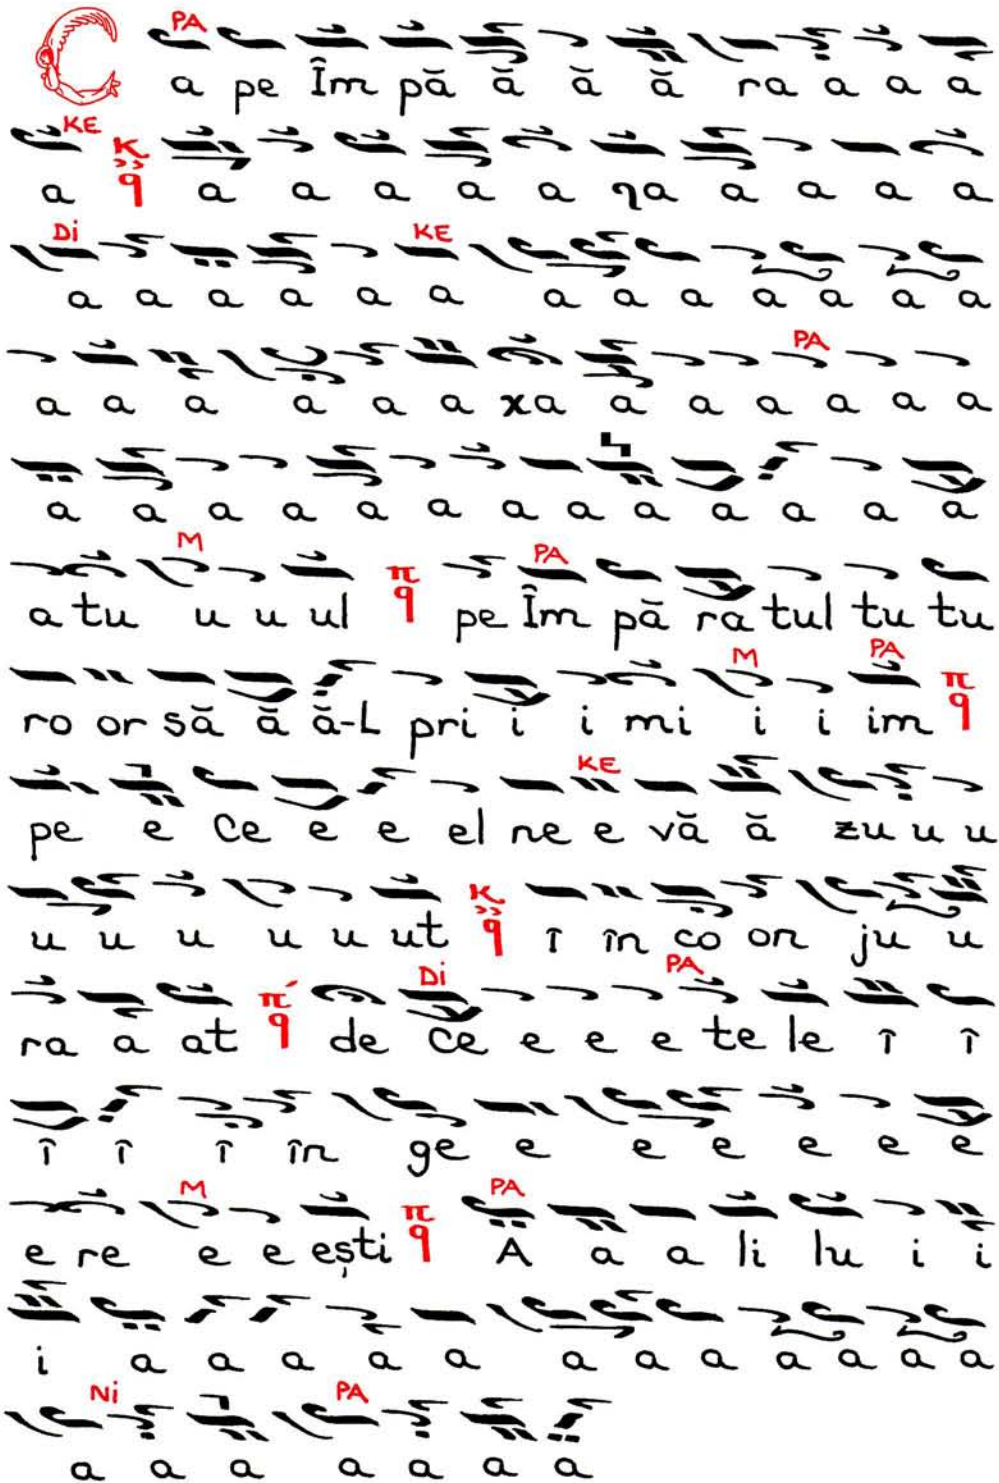 PA
C a pe Îm pă ă ă ă ra a a a
KE
a K q a a a a a ηa a a a a
Di KE
a a a a a a a a a a a a a
PA
a a a a a a xa a a a a a a
a a a a a a a a a a a a a
M PA
a tu u u ul π q pe Îm pă ra tul tu tu
M PA
ro or să ă ă-L pri i i mi i i im π q
KE
pe e ce e e el ne e vă ă zu u u
u u u u u ut K q î în co on ju u
Di PA
ra a at π΄ q de ce e e e te le î î
î î î în ge e e e e e e
M PA
e re e e ești π q A a a li lu i i
i a a a a a a a a a a a a
Ni PA
a a a a a a a